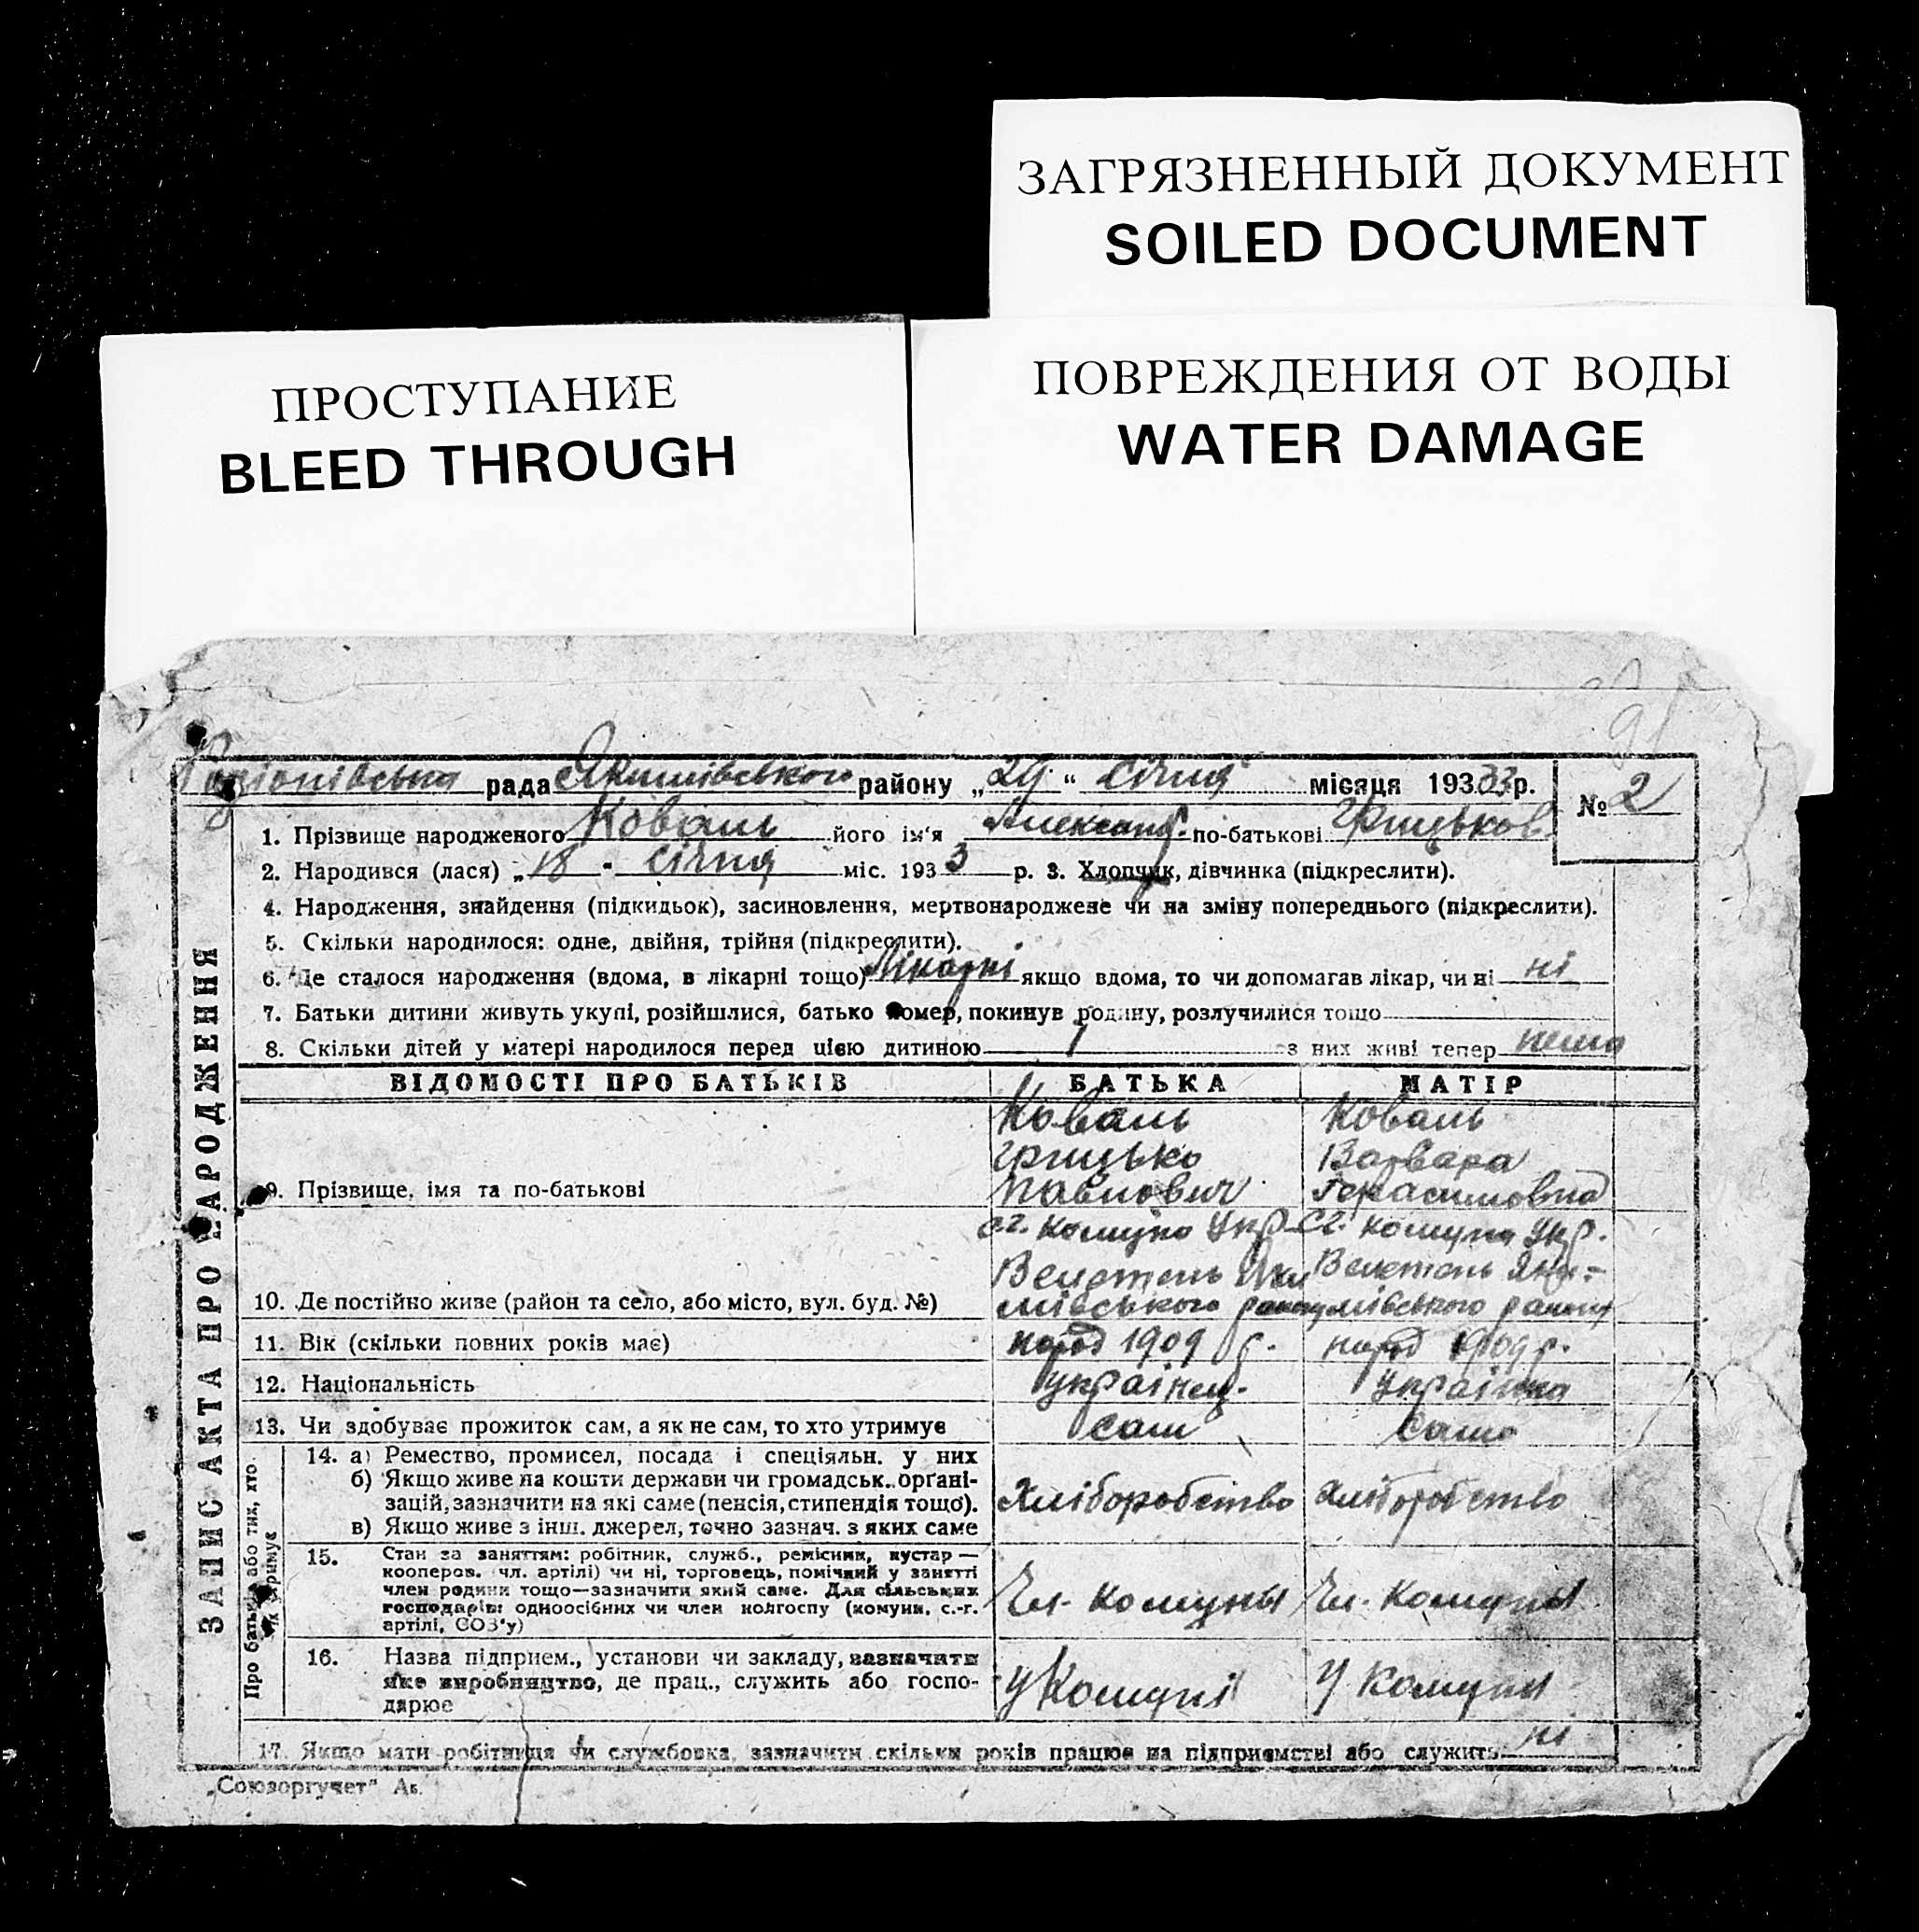 ЗАГРЯЗНЕННЫЙ ДОКУМЕНТ
SOILED DOCUMENT
ПРОСТУПАНИЕ
BLEED THROUGH
ПОВРЕЖДЕНИЯ ОТ ВОДЫ
WATER DAMAGE
рада Якимівського району „29" січня місяця 193 33 р.
№ 2
1. Прізвище народженого Коваль його ім'я Александ. по-батькові Грицьков
2. Народився (лася) „18 " січня міс. 193 3 р. 3. Хлопчик, дівчинка (підкреслити).
4. Народження, знайдення (підкидьок), засиновлення, мертвонароджене чи на зміну попереднього (підкреслити).
5. Скільки народилося: одне, двійня, трійня (підкреслити).
6. Де сталося народження (вдома, в лікарні тощо) Лікарні якщо вдома, то чи допомагав лікар, чи ні ні
7. Батьки дитини живуть укупі, розійшлися, батько помер, покинув родину, розлучилися тощо
8. Скільки дітей у матері народилося перед цією дитиною 1 з них живі тепер нема
ЗАПИС АКТА ПРО НАРОДЖЕННЯ
ВІДОМОСТІ ПРО БАТЬКІВ БАТЬКА МАТІР
9. Прізвище, імя та по-батькові
Коваль
Грицько
Павлович
Коваль
Варвара
Герасимовна
10. Де постійно живе (район та село, або місто, вул. буд. №)
ст. комуна Укр.
Велетень Яки
мівського району
ст. комуна Укр.
Велетень Яки-
мівського району
11. Вік (скільки повних років має) народ 1909 р. народ 1909 р.
12. Національність українец. українка
13. Чи здобуває прожиток сам, а як не сам, то хто утримує сам сама
Про батька або тих, хто їх утримує
14. а) Ремество, промисел, посада і спеціяльн. у них
б) Якщо живе на кошти держави чи громадськ. орґані-
зацій, зазначити на які саме (пенсія, стипендія тощо).
в) Якщо живе з інш. джерел, точно зазнач. з яких саме
Хліборобство Хліборобство
15. Стан за заняттям: робітник, служб., ремісник, кустар —
кооперов. чл. артілі) чи ні, торговець, помічний у занятті
член родини тощо—зазначити який саме. Для сільських
господарів: одноосібних чи член колгоспу (комуни, с.-г.
артілі, СОЗ'у)
Чл. Комуны Чл. Комуны
16. Назва підприєм., установи чи закладу, зазначити
яке виробництво, де прац., служить або госпо-
дарює
У Комуні У Комуны
17. Якщо мати робітниця чи службовка, зазначити скільки років працює на підприємстві або служить ні
„Союзоргучет"